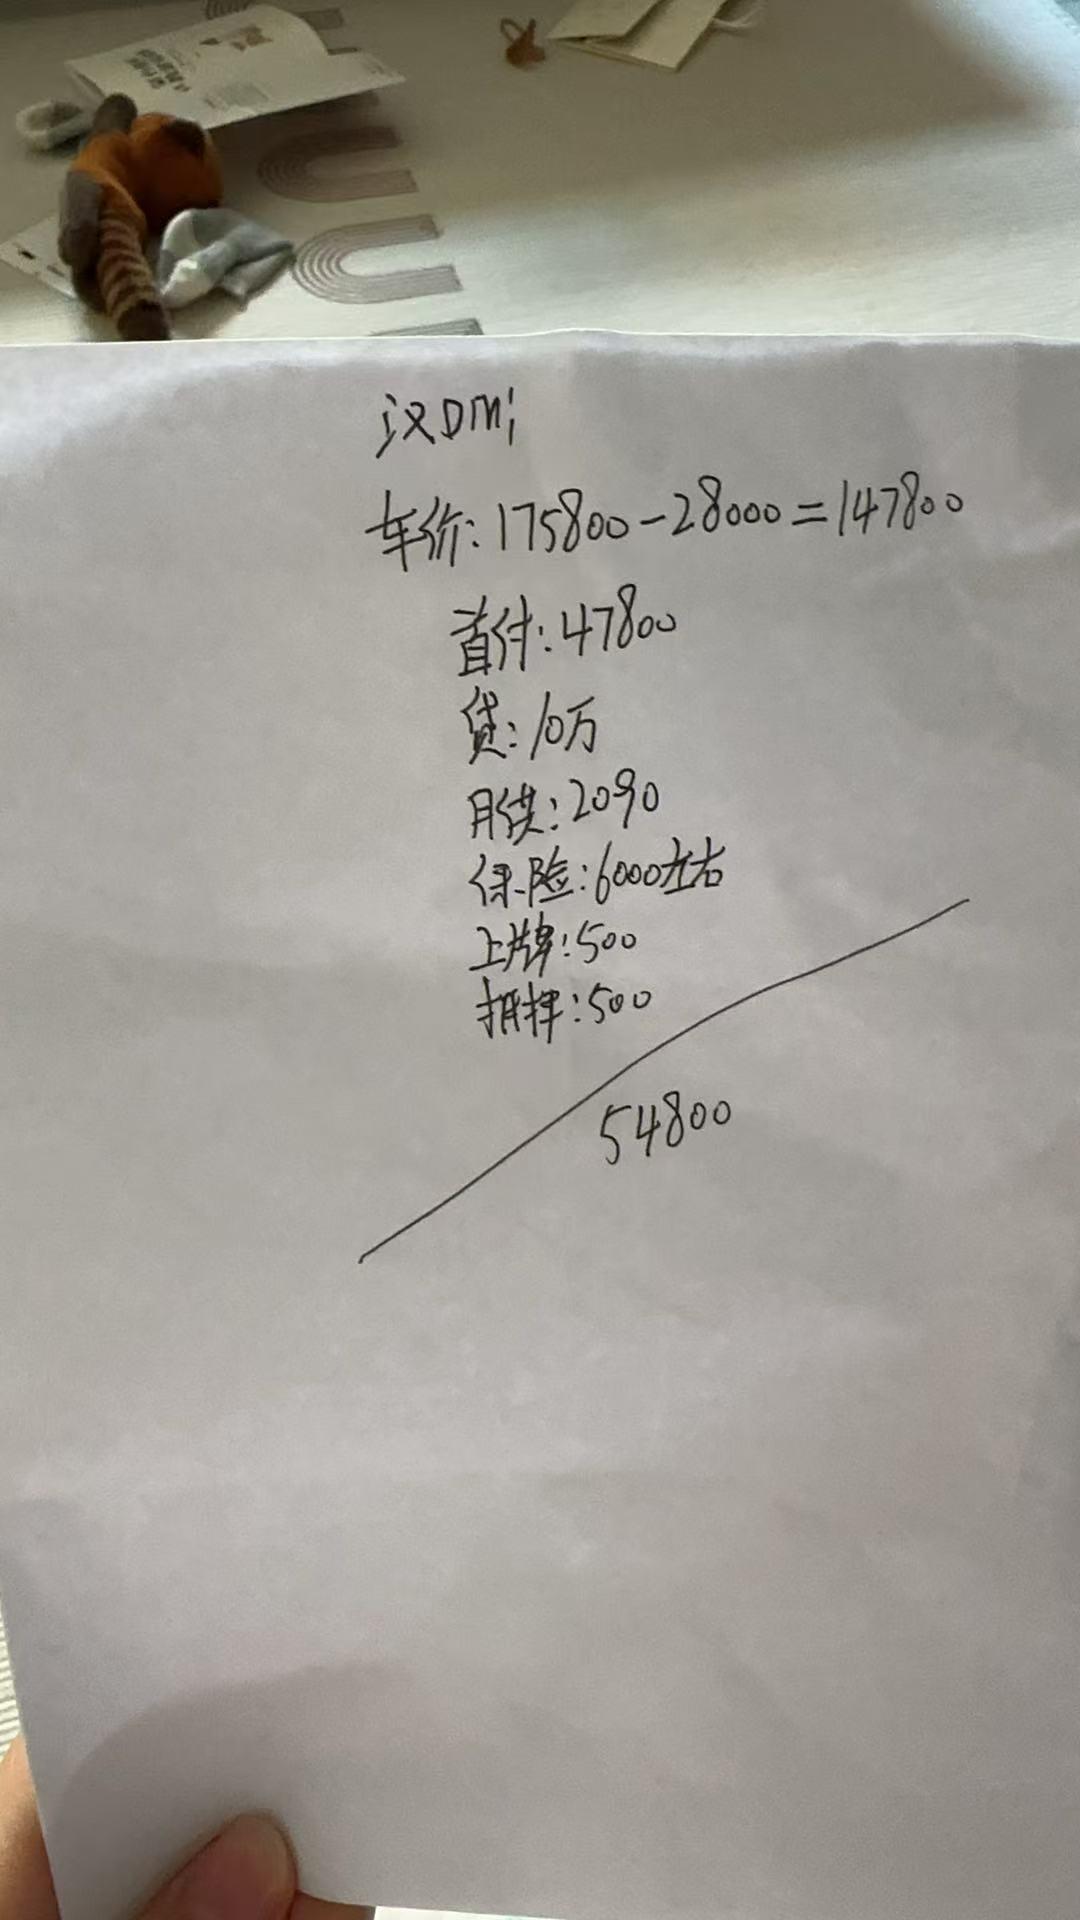 汉DMi
车价:175800-28000=147800
首付:47800
贷:10万
月供:2090
保险:6000左右
上牌:500
抵押:500
54800